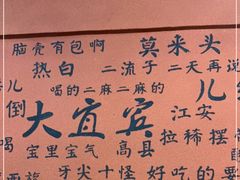 脑壳有包啊 莫来头
热白 二流子 二天再说
喝的二麻二麻的 儿
倒 大宜宾 江安
喝 拉稀摆
宝里宝气 高县
牙尖十怪 好吃的